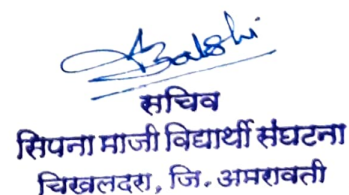 सचिव
सिपना माजी विद्यार्थी संघटना
चिखलदरा, जि. अमरावती